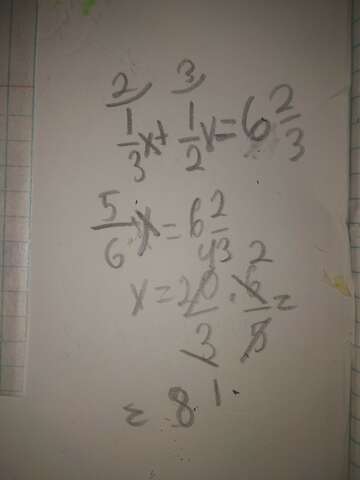 2 3
1/3 x + 1/2 x = 6 2/3
5/6 x = 6 2/3
4 2
x = 20/3 · 6/5 =
= 8